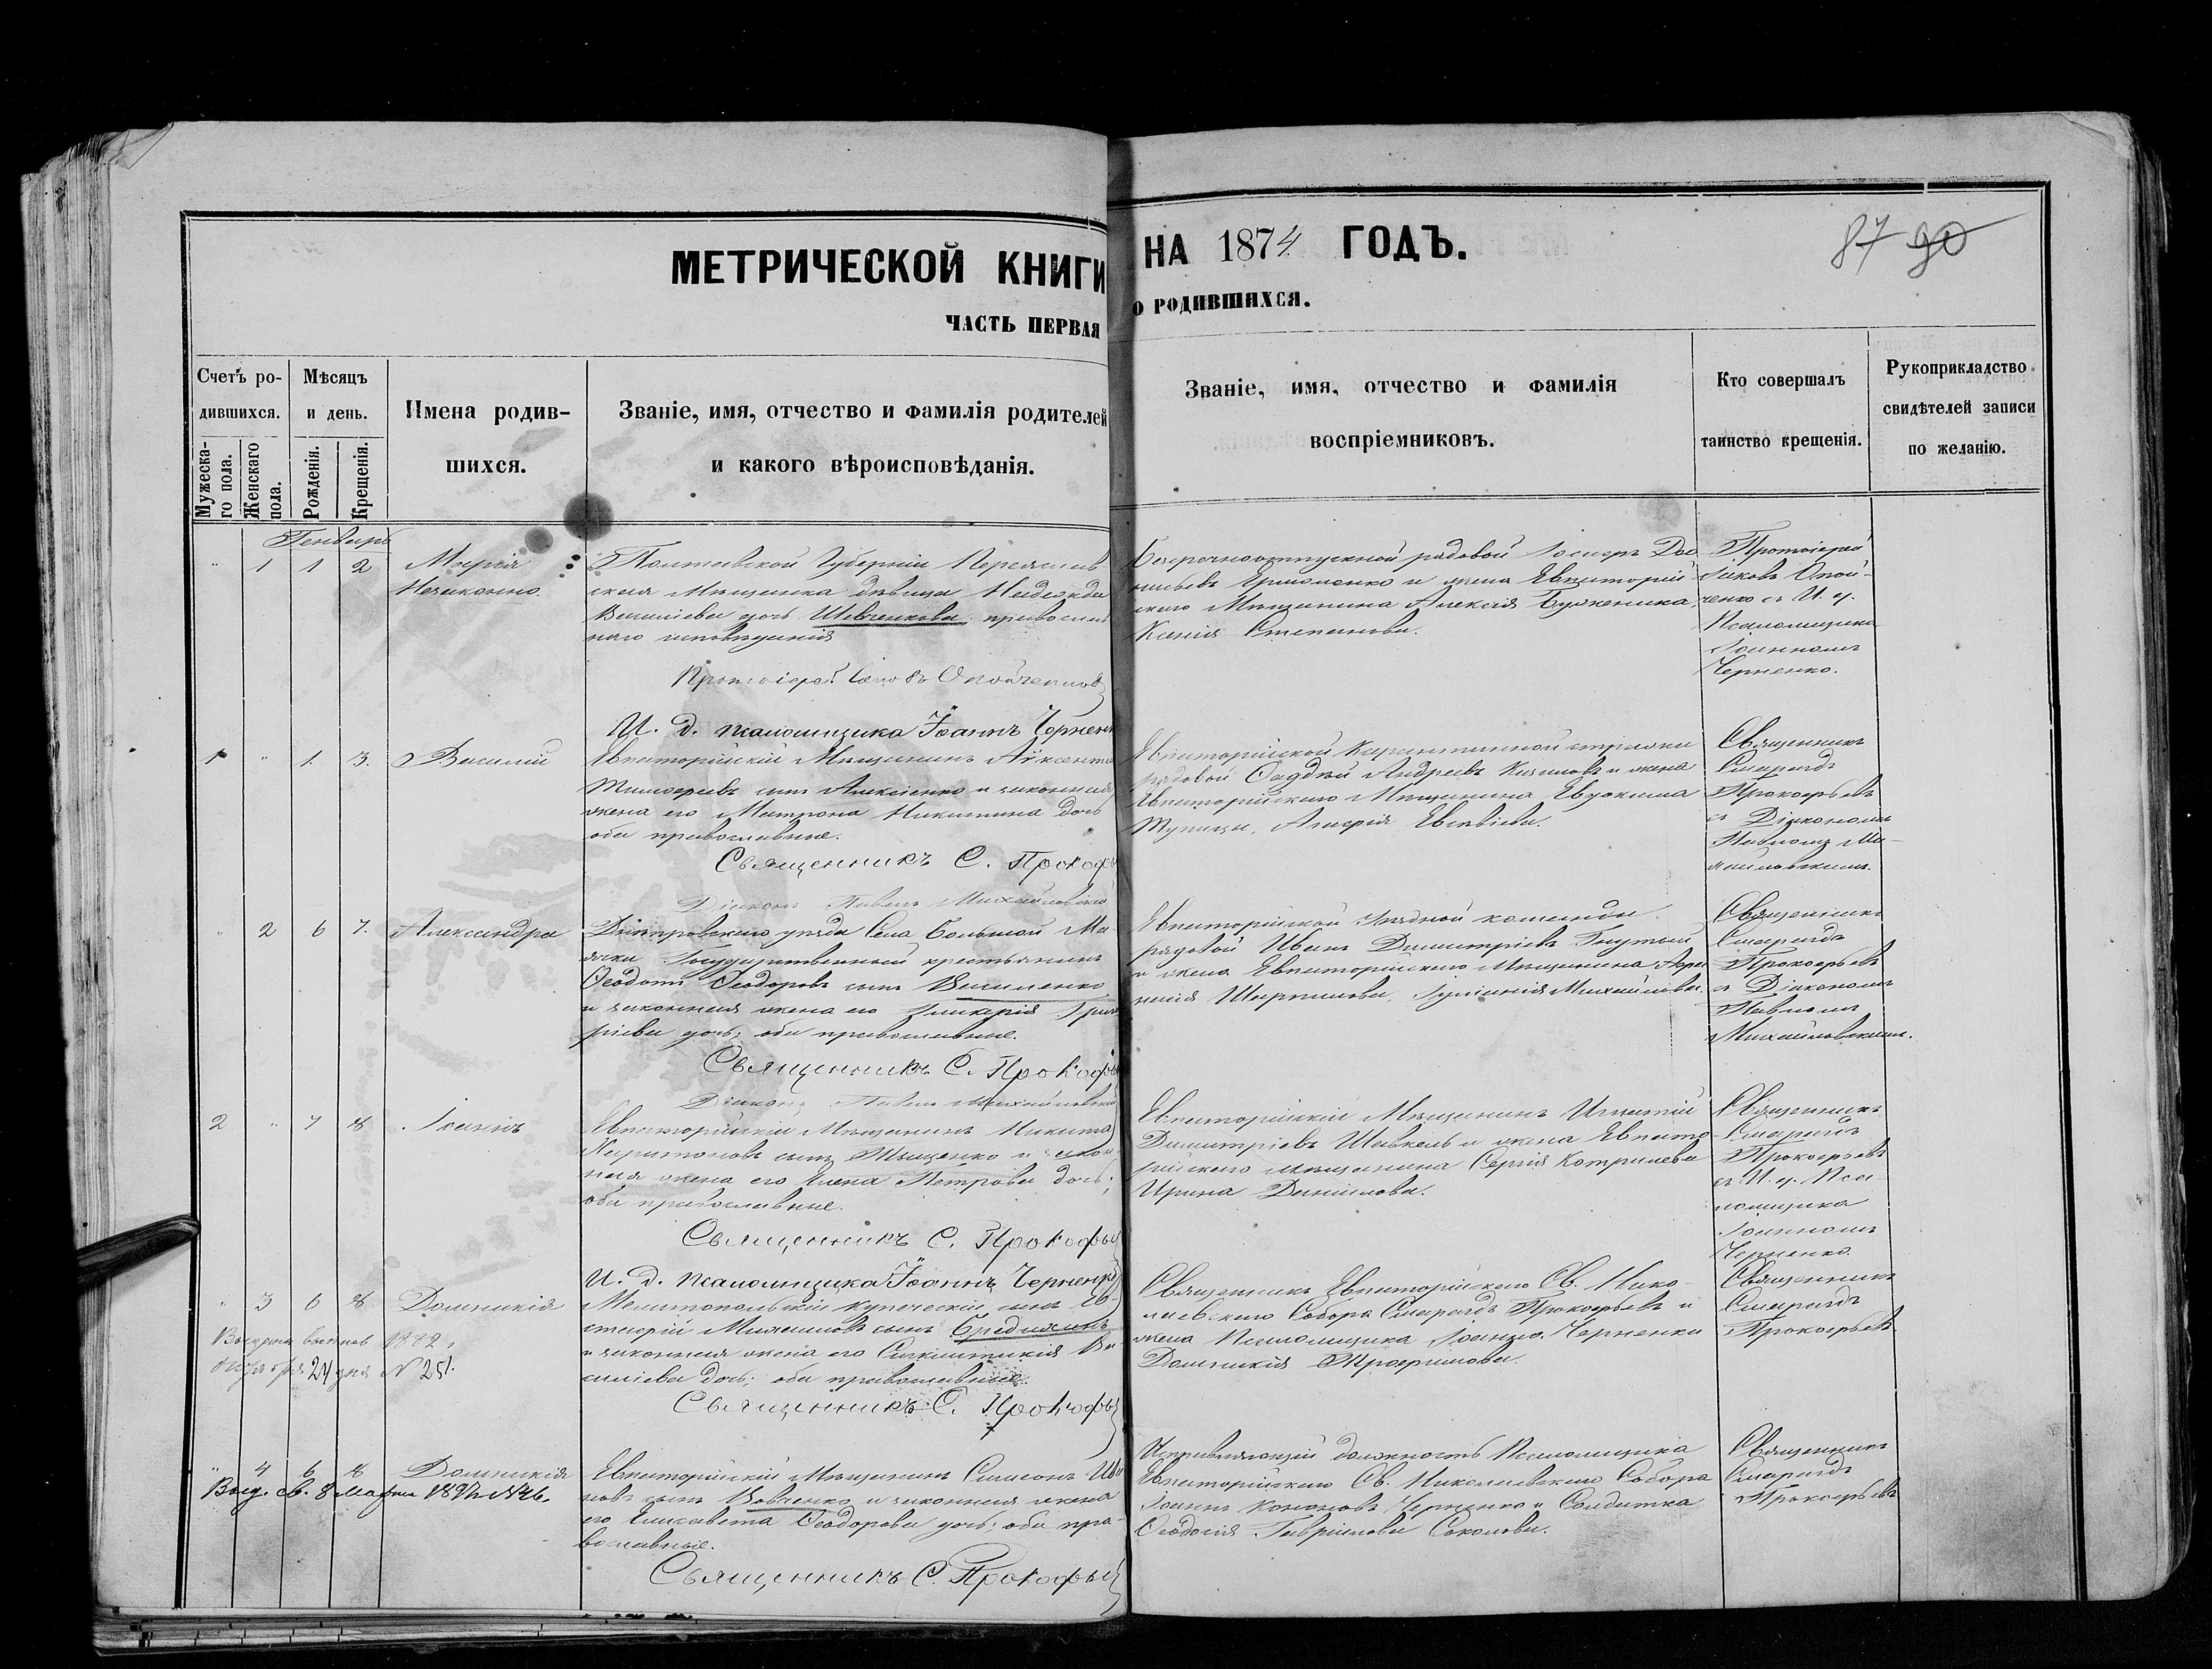 МЕТРИЧЕСКОЙ КНИГИ НА 1874 ГОДЪ.
87 90
ЧАСТЬ ПЕРВАЯ О РОДИВШИХСЯ.
Счетъ ро-
дившихся.
Мужеска-
го пола.
Женскаго
пола.
Мѣсяцъ
и день.
Рожденія.
Крещенія.
Имена родив-
шихся.
Званіе, имя, отчество и фамилія родителей
и какого вѣроисповѣданія.
Званіе, имя, отчество и фамилія
воспріемниковъ.
Кто совершалъ
таинство крещенія.
Рукоприкладство
свидѣтелей записи
по желанію.
Генварь
" 1 1 2 Марія
Незаконно.
Полтавской Губерніи Переяслав
ская Мѣщанка дѣвица Надежда
Василіева дочь Шевченкова, православ
наго исповѣданія
Протоіерей Іаковъ
И. д. псаломщика Іоаннъ Чернен
рядовой Іосифъ
и жена Евпаторій
скаго Мѣщанина Алексія
Ксенія Степанова.
Протоіерей
Іаковъ Опой-
ченко съ И. д.
Псаломщика
Іоанномъ
Черненко.
1 " 1 3. Василій
Евпаторійскій Мѣщанинъ
Тимоѳеевъ сынъ Алексіенко и законная
жена его Матрона Никитина дочь
оба православные.
Священникъ С. Прокофь
Діаконъ Павелъ Михайловскій
Евпаторійской Карантинной стражи
рядовой Андреевъ и жена
Евпаторійскаго Мѣщанина Евдокима
Священникъ
Смарагдъ
Прокофьевъ
съ Діакономъ
Павломъ Ми-
хайловскимъ.
" 2 6 7. Александра
Днѣпровскаго уѣзда Села Большой Ма
ячки Государственный крестьянинъ
Ѳеодотъ Ѳеодоровъ сынъ Василенко
и законная жена его Гликерія Григо
ріева дочь, оба православные.
Священникъ С. Прокофь
Діаконъ Павелъ Михайловскій
Евпаторійской Уѣздной команды
рядовой Иванъ Димитріевъ
и жена Евпаторійскаго Мѣщанина
Іуліанія Михайлова.
Священникъ
Смарагдъ
Прокофьевъ
съ Діакономъ
Павломъ
Михайловскимъ.
2 " 7 8 Іоаннъ
Евпаторійскій Мѣщанинъ Никита
Харитоновъ сынъ Тыщенко и закон
ная жена его Елена Петрова дочь;
оба православные.
Священникъ С. Прокофьев
И. д. псаломщика Іоаннъ Черненко
Евпаторійскій Мѣщанинъ Игнатій
Димитріевъ и жена Евпато
рійскаго мѣщанина Сергія
Ирина Даніилова.
Священникъ
Смарагдъ
Прокофьевъ
съ И. д. Пса
ломщика
Іоанномъ
Черненко.
" 3 6 8 Домникія
1882 г
24 дня № 251.
Мелитопольскій купеческій сынъ Ев-
стафій Михайловъ сынъ
и законная жена его Синклитикія Ва
силіева дочь; оба православные.
Священникъ С. Прокофьев
Священникъ Евпаторійскаго Св. Нико-
лаевскаго Собора Смарагдъ Прокофьевъ и
жена Псаломщика Іоанна Черненки
Домникія Трофимова.
Священникъ
Смарагдъ
Прокофьевъ
" 4 6 8 Домникія
Выд. св. 8 марта № 46.
Евпаторійскій Мѣщанинъ Симеонъ Ива
новъ сынъ Вовченко и законная жена
его Елисавета Ѳеодорова дочь; оба пра-
вославные.
Священникъ С. Прокофьев
Исправляющій должность Псаломщика
Евпаторійскаго Св. Николаевскаго Собора
Іоаннъ Кононовъ Черненко и Солдатка
Ѳеодосія Гавріилова Соколова.
Священникъ
Смарагдъ
Прокофьевъ